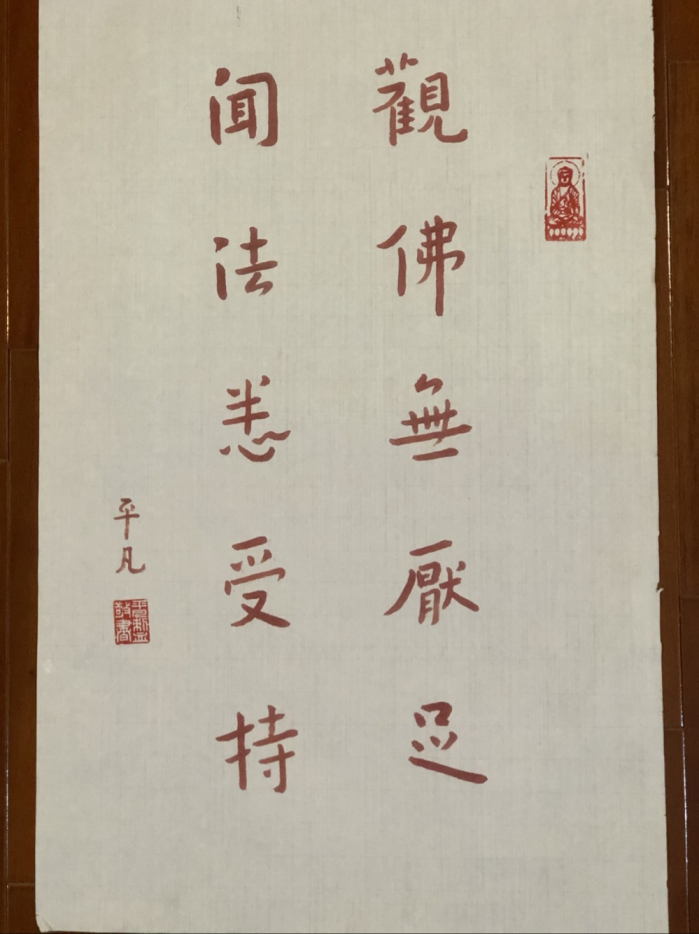 觀佛無厭足
闻法悉受持
平凡